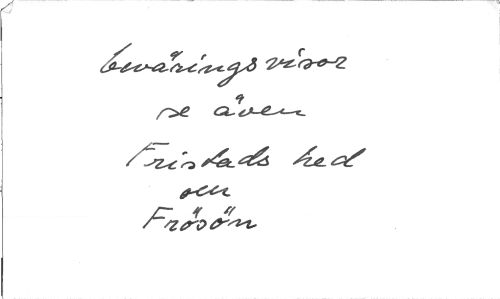 beväringsvisor
se även
Fristads hed
och
Frösön